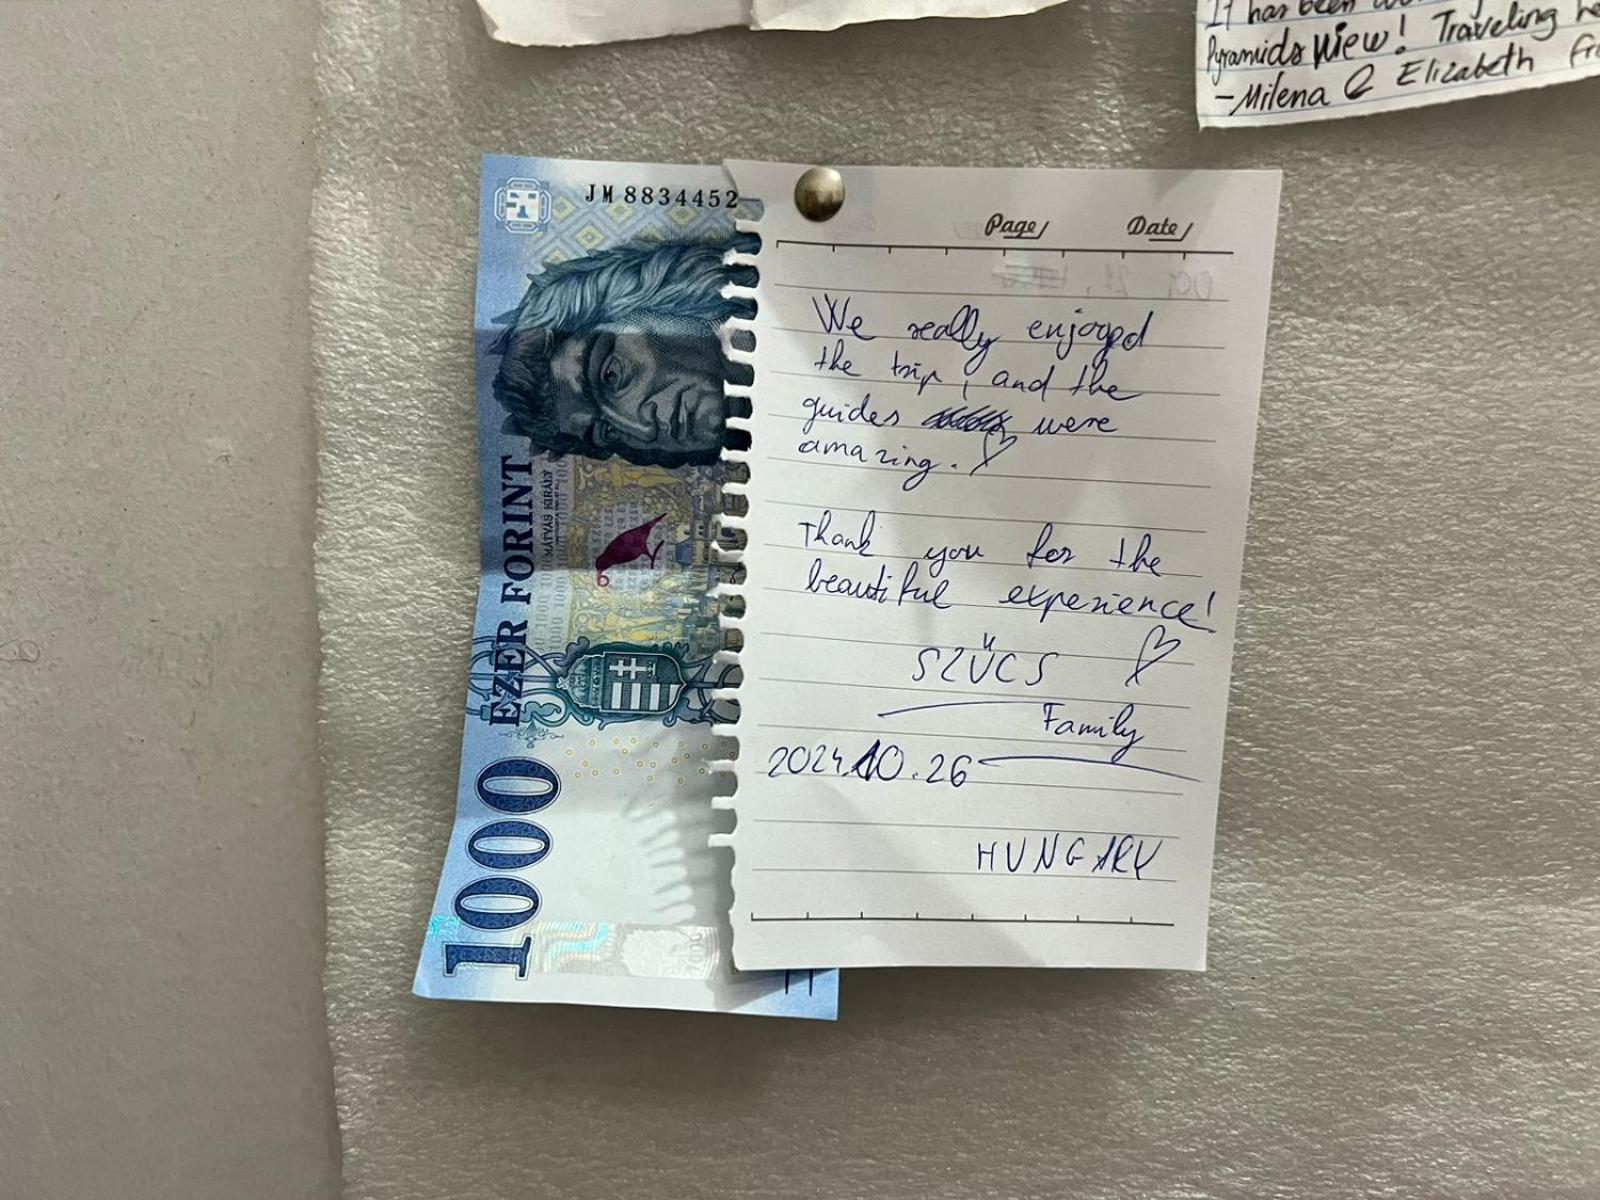 It has been
Pyramids View! Traveling
-Milena & Elizabeth
JM 8834452
EZER FORINT
MÁTYÁS KIRÁLY
1000
Page/ Date/
We really enjoyed
the trip, and the
guides were
amazing.
Thank you for the
beautiful experience!
SZŰCS
Family
2024.10.26
HUNGARY